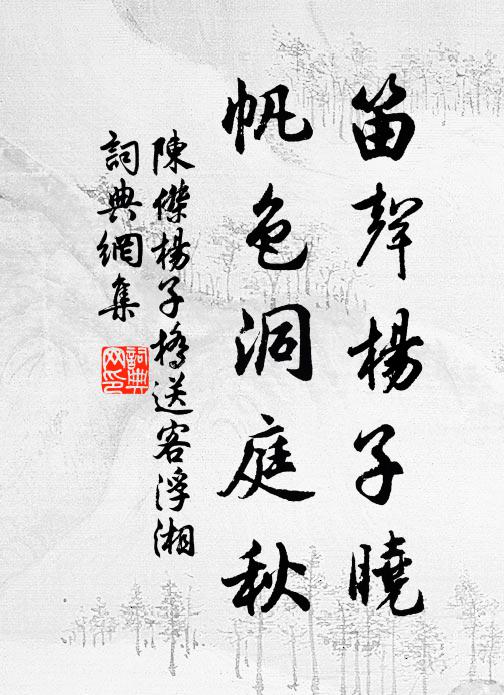 笛聲楊子曉
帆色洞庭秋
陳傑楊子橋送客浮湘
詞典網集
詞典網印